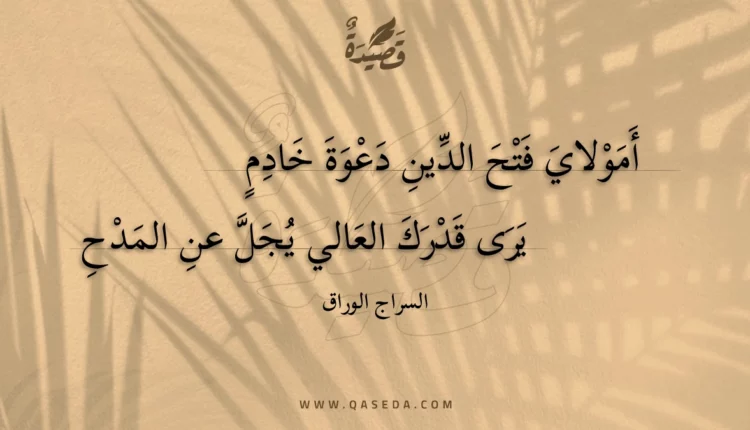 قَصِيْدَةٌ
أَمَوْلايَ فَتْحَ الدِّينِ دَعْوَةَ خَادِمٍ
يَرَى قَدْرَكَ العَالي يُجَلَّ عنِ المَدْحِ
السراج الوراق
WWW.QASEDA.COM